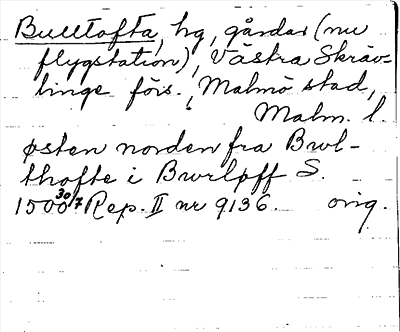 Bulltofta, hg, gårdar (nu
flygstation), Västra Skräv-
linge förs., Malmö stad,
Malm. l.
østen norden fra Bwl-
thofte i Bwrløff S.
1500 30/7 Rep. II nr 9136. orig.